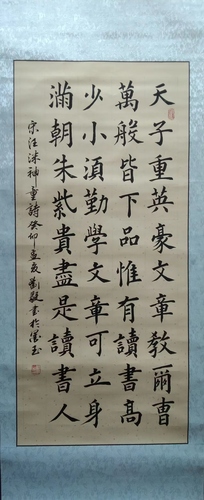 天子重英豪文章教爾曹
萬般皆下品惟有讀書高
少小須勤學文章可立身
滿朝朱紫貴盡是讀書人
宋汪洙神童詩癸卯孟夏劉毅書於墨玉